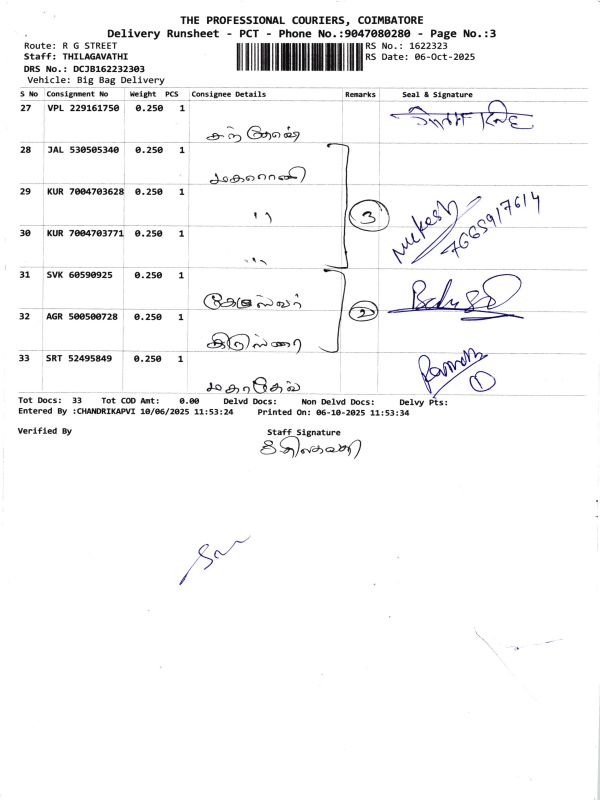 THE PROFESSIONAL COURIERS, COIMBATORE
Delivery Runsheet - PCT - Phone No.:9047080280 - Page No.:3
Route: R G STREET
RS No.: 1622323
Staff: THILAGAVATHI
RS Date: 06-Oct-2025
DRS No.: DCJB162232303
Vehicle: Big Bag Delivery
S No Consignment No Weight PCS Consignee Details Remarks Seal & Signature
27 VPL 229161750 0.250 1
28 JAL 530505340 0.250 1
மகாராணி
29 KUR 7004703628 0.250 1
" 3
Mukesh
7665917614
30 KUR 7004703771 0.250 1
"
31 SVK 60590925 0.250 1
2
32 AGR 500500728 0.250 1
33 SRT 52495849 0.250 1
1
Tot Docs: 33 Tot COD Amt: 0.00 Delvd Docs: Non Delvd Docs: Delvy Pts:
Entered By :CHANDRIKAPVI 10/06/2025 11:53:24 Printed On: 06-10-2025 11:53:34
Verified By Staff Signature